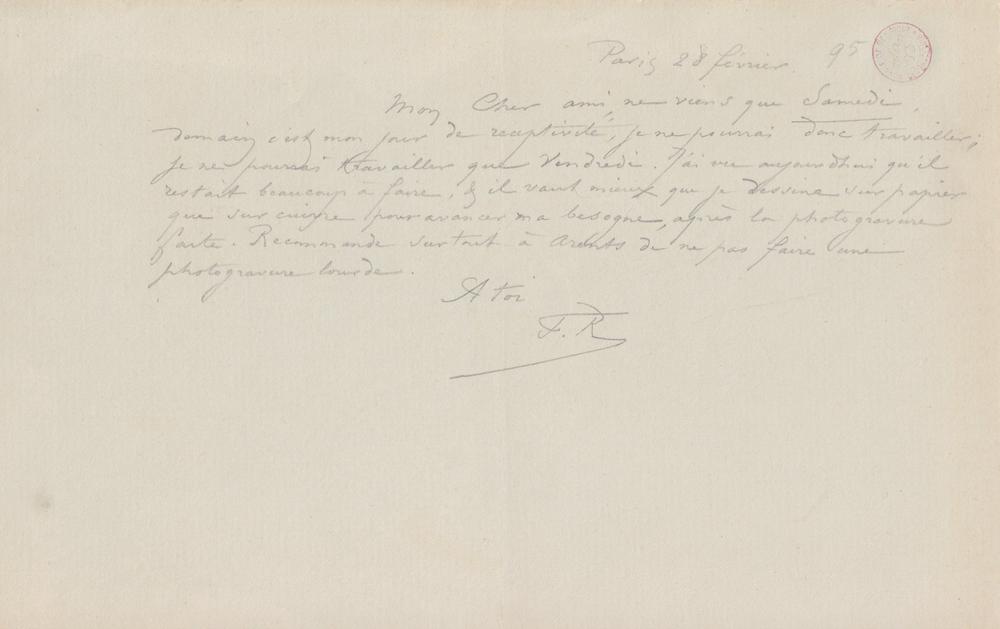 Paris 28 février 95
Mon Cher ami, ne viens que Samedi,
Demain c'est mon jour de receptivité, je ne pourrai donc travailler;
je ne pourrai travailler que Vendredi. J'ai vu aujourdhui qu'il
restait beaucoup à faire, & il vaut mieux que je dessine sur papier
que sur cuivre pour avancer ma besogne, après la photogravure
faite. Recommande surtout à Arents de ne pas faire une
photogravure lourde.
A toi
F. R